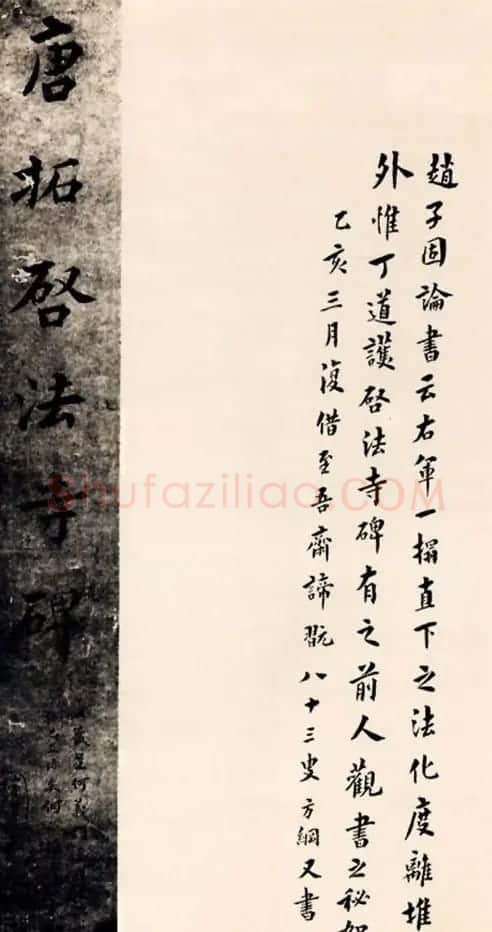 趙子固論書云右軍一搨直下之法化度離堆
外惟丁道護啓法寺碑有之前人觀書之秘如
乙亥三月復借至吾齋諦翫八十三叟方綱又書
唐拓啓法寺碑
Shufaziliao.COM